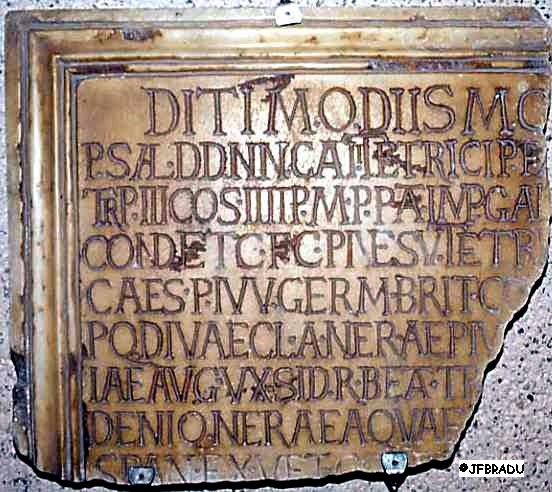 DITI·M·O·DIIS M·C
P·SAL·DDNN·C·A
TR·P·III COS IIII P·M·P·P·A·IMP·GAL
COND·ET C·F·C·PIVESV·IETR
CAES·P·IVV·GERM·BRIT·CO
PQ DIVAE CL·A·NER·AE PIV
IAE AVG·VX·SI D·R·BEA·TR
DENIO·NERAEAQVAE
©JFBRADU